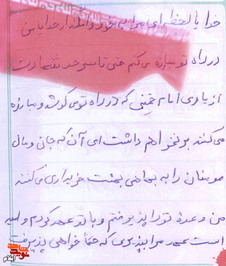 خدایا لحظه‌ای مرا به خود وامگذار خدایا من
در راه تو مبارزه می کنم حتی تا سر حد شهادت
از یاری امام خمینی که در راه تو می کوشد و مبارزه
می کند بر نخواهم داشت ای آن که جان و مال
مومنان را به بهای بهشت خریداری می کنند
من وعده تو را پذیرفتم و با تو عهد کردم و امید
است عهد مرا بپذیری که حتماً خواهی پذیرفت